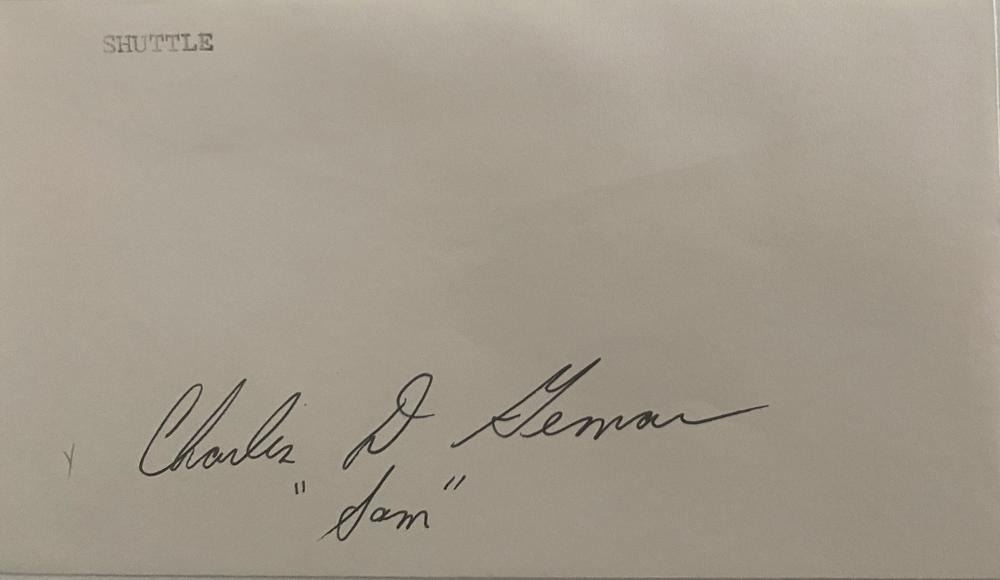 SHUTTLE
Charles D Gemar
"Sam"